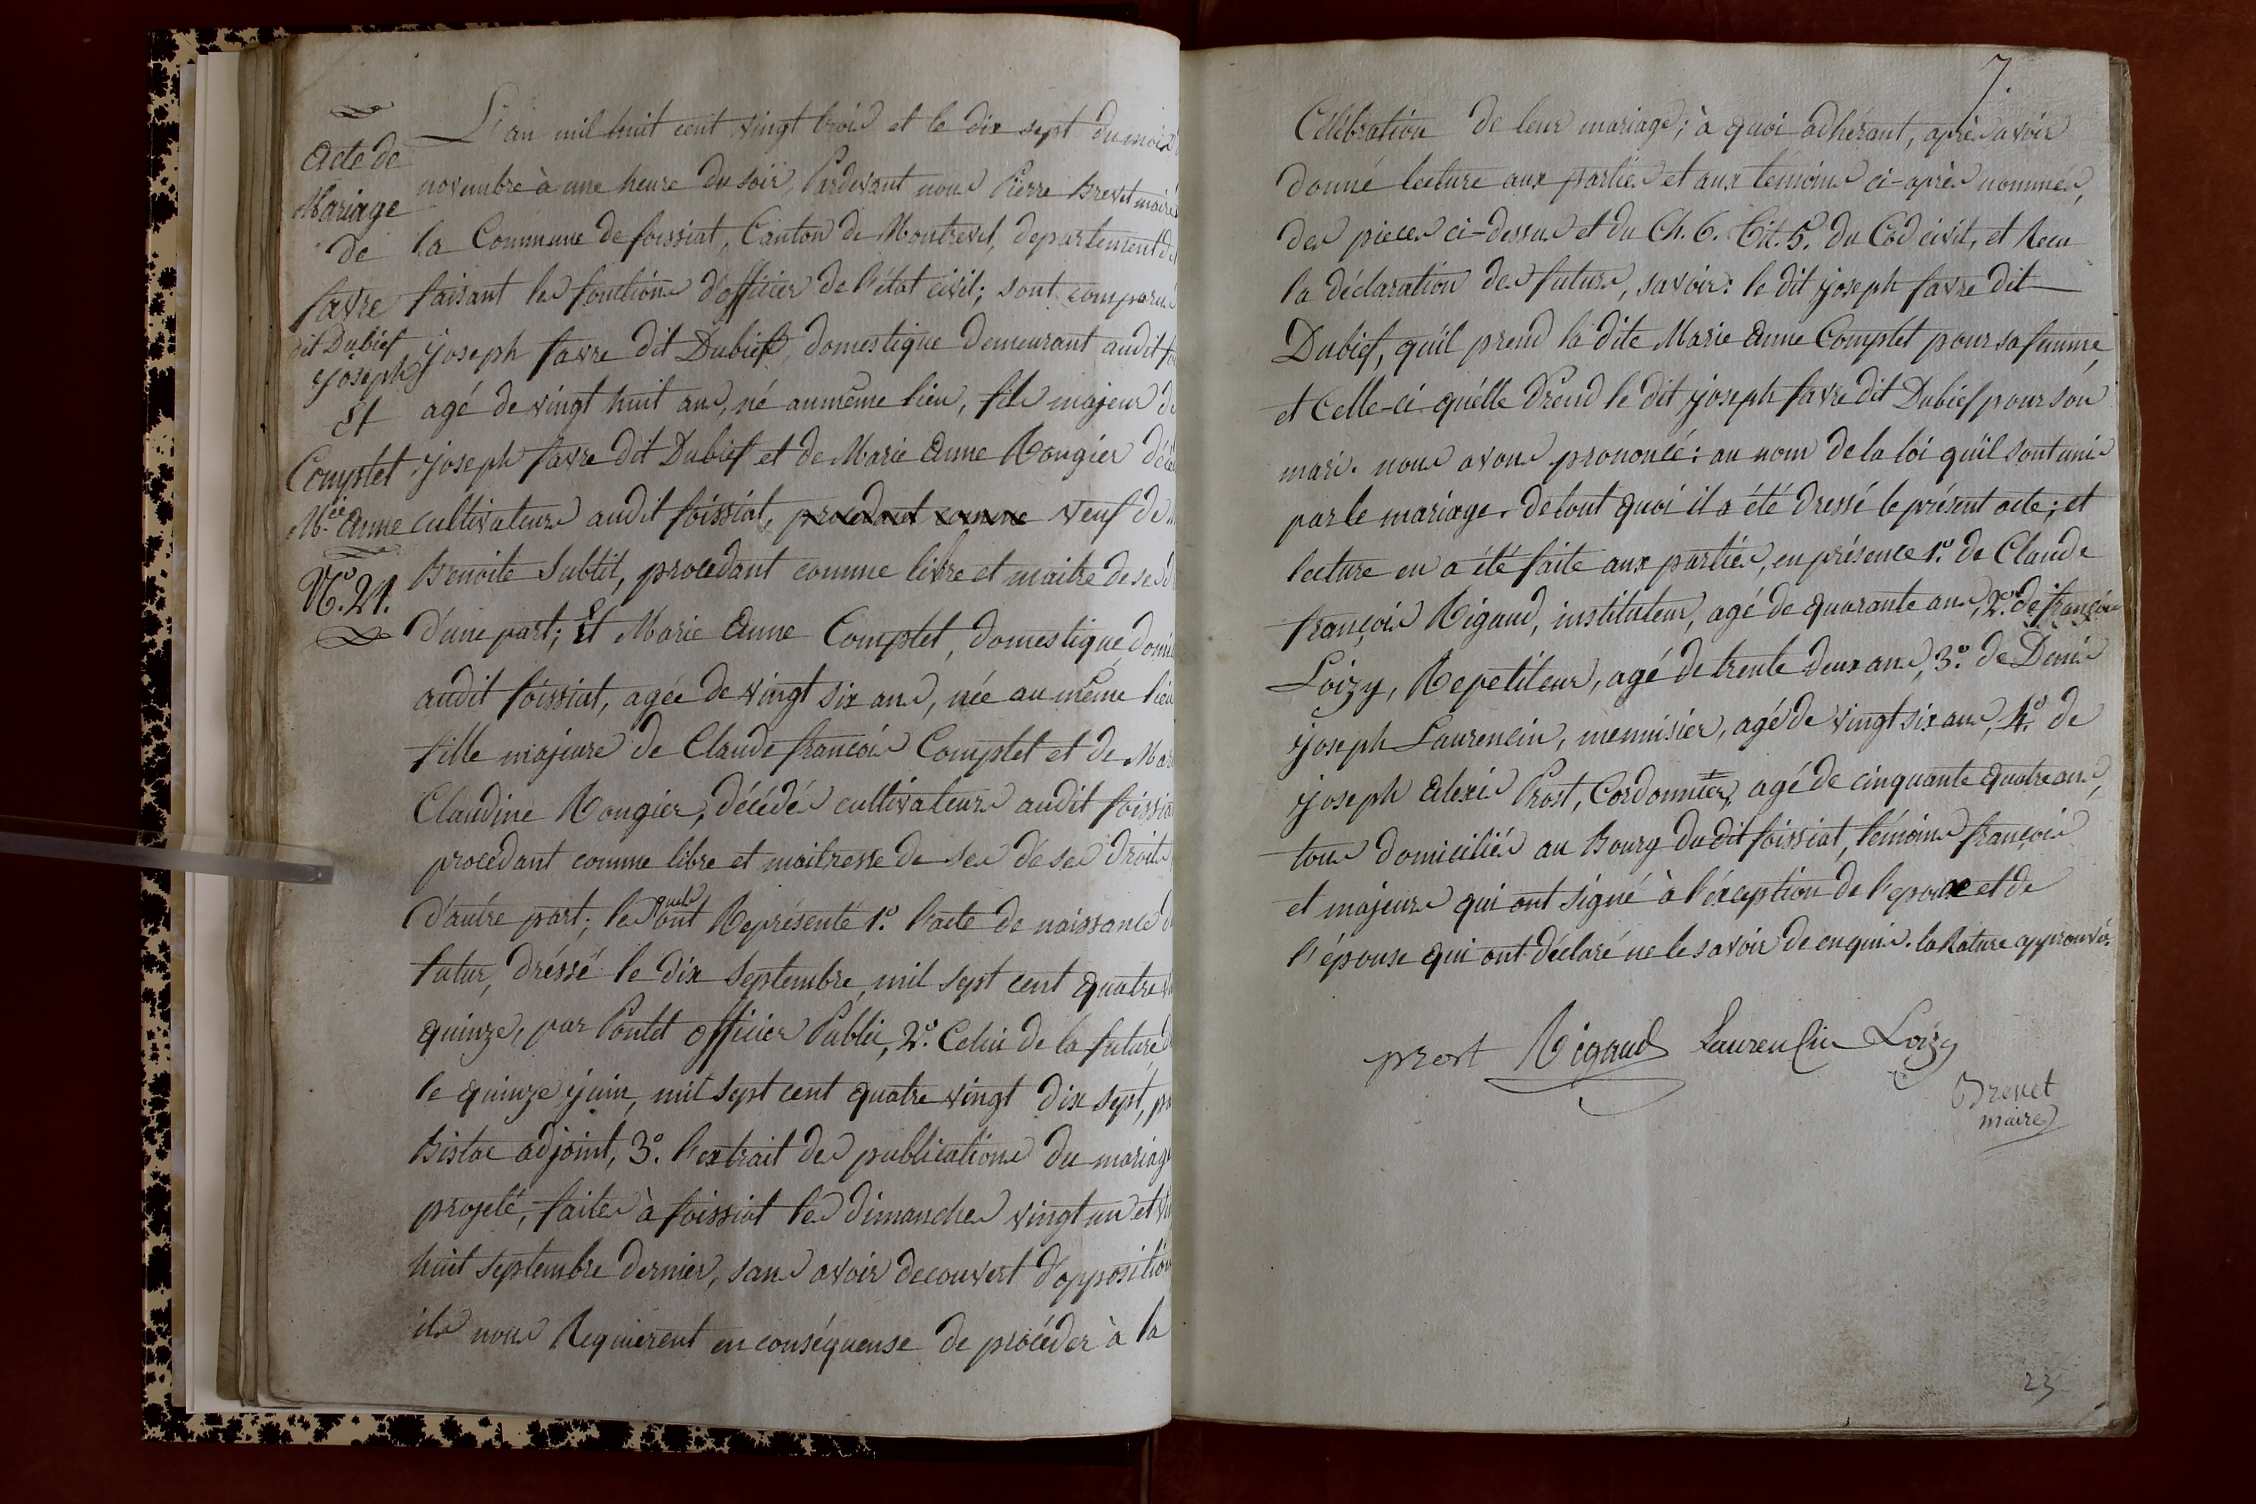 Acte de
Mariage
de
favre
dit Dubief
joseph
Et
Complet
M.ie Anne
N.o 21.
L'an mil huit cent vingt trois et le dix sept du mois
novembre à une heure du soir, Pardevant nous Pierre Brevet maire
la Commune de foissiat, Canton de Montrevel, departement de
faisant les fonctions d'officier de l'état civil; sont comparus
joseph favre dit Dubief, domestique demeurant audit
agé de vingt huit ans, né au même lieu, fils majeur de
joseph favre dit Dubief et de Marie Anne Rongier
cultivateurs audit foissiat, procedant comme veuf de
Benoite Subtil, procedant comme libre et maitre de ses
d'une part; Et Marie Anne Complet, domestique
audit foissiat, agée de vingt six ans, née au même lieu
fille majeure de Claude françois Complet et de
Claudine Rongier, décédés cultivateurs audit foissiat
procedant comme libre et maitresse de ses de ses droits
d'autre part; lesquels ont Représenté 1.o l'acte de naissance
futur, dréssé le dix septembre mil sept cent quatre
quinze, par Pontet officier Public, 2.o Celui de la future
le quinze juin, mil sept cent quatre vingt dix sept,
Bistac adjoint, 3.o l'extrait des publications du mariage
projeté, faites à foissiat les dimanches vingt un et
huit septembre dernier, sans avoir decouvert d'opposition
ils nous Requierent en conséquense de procéder à la
7.
Célébration de leur mariage; à quoi adhérant, après avoir
donné lecture aux parties et aux témoins ci-après nommés,
des pieces ci-dessus et du Ch. 6. Tit. 5. du Cod civil, et Recu
la déclaration des futurs, savoir: le dit joseph favre dit
Dubief, qu'il prend la dite Marie Anne Complet pour sa femme,
et Celle-ci qu'elle Prend le dit joseph favre dit Dubief pour son
mari. nous avons prononcé: au nom de la loi qu'ils sont unis
par le mariage. de tout quoi il a été dressé le présent acte; et
lecture en a été faite aux parties, en présence 1.o de Claude
françois Rigaud, instituteur, agé de quarante ans, 2.o de françois
Loizy, Repetiteur, agé de trente deux ans, 3.o de Denis
joseph Laurencin, menuisier, agé de vingt six ans, 4.o de
joseph alexis Prost, Cordonnier, agé de cinquante quatre ans,
tous domiciliés au Bourg dudit foissiat, témoins françois
et majeurs qui ont signé à l'éxception de l'epoux et de
l'épouse qui ont déclaré ne le savoir de enquis. la Rature approuvée.
prost Rigaud Laurencin Loizy
Brevet
maire
23